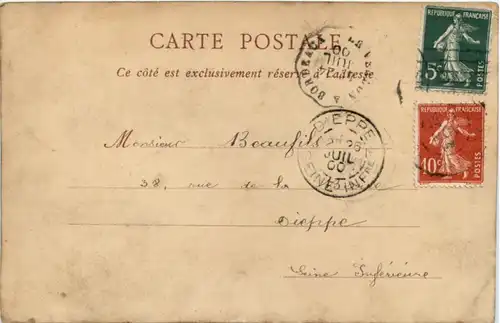 CARTE POSTALE
Ce côté est exclusivement réservé à l'adresse
RÉPUBLIQUE FRANÇAISE
5c
RÉPUBLIQUE FRANÇAISE
10c
BORDEAUX
DIEPPE
26
JUIL
00
SEINE INFRE
Monsieur Beaufils
38, rue de la
Dieppe
Seine Inférieure